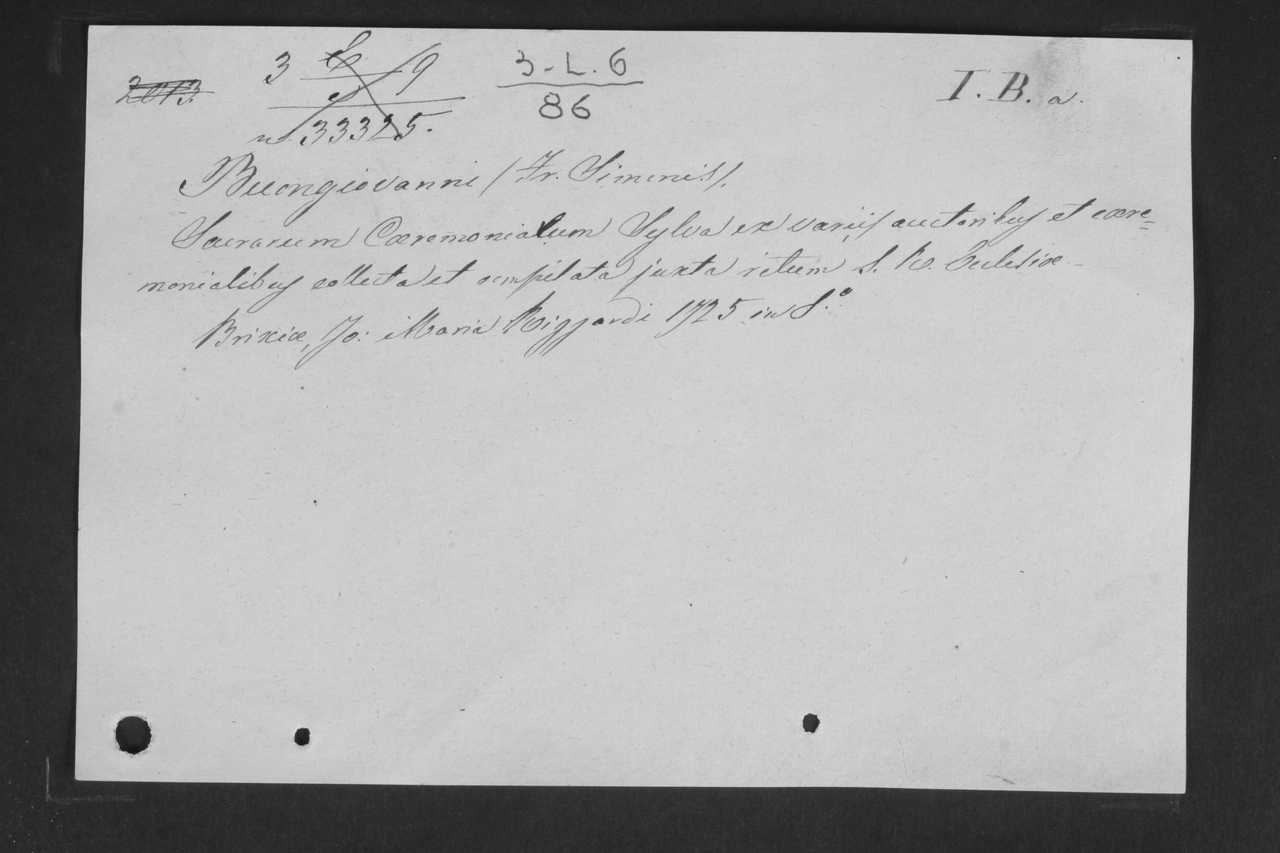 2013
3 S 9
n 33325.
3-L.6
86
I. B. a.
Buongiovanni (Fr. Simonis).
Sacrarum Cæremonialum Sylva ex variis auctoribus et cære=
monialibus collecta et compilata juxta ritum S. R. Ecclesiæ
Brixiæ, Jo: Maria Rizzardi 1725 in 8.º